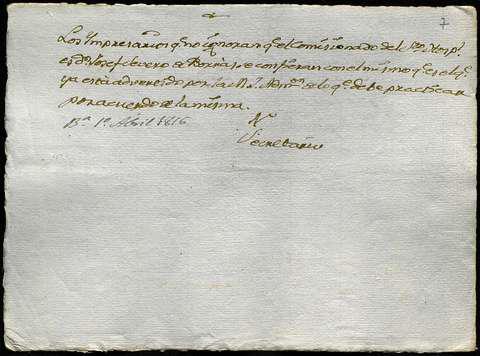 7
Los Impresarios q.e no ignoran q.e el Comisionado del S.to Hospl.
es dn. Josef de Borras, se conferan con el mismo q.e es el q.e
ya está advertido por la R.l Admon. de lo q.e debe practicar
por acuerdo de la misma.
Ba. 1o. Abril 1816
Secretario